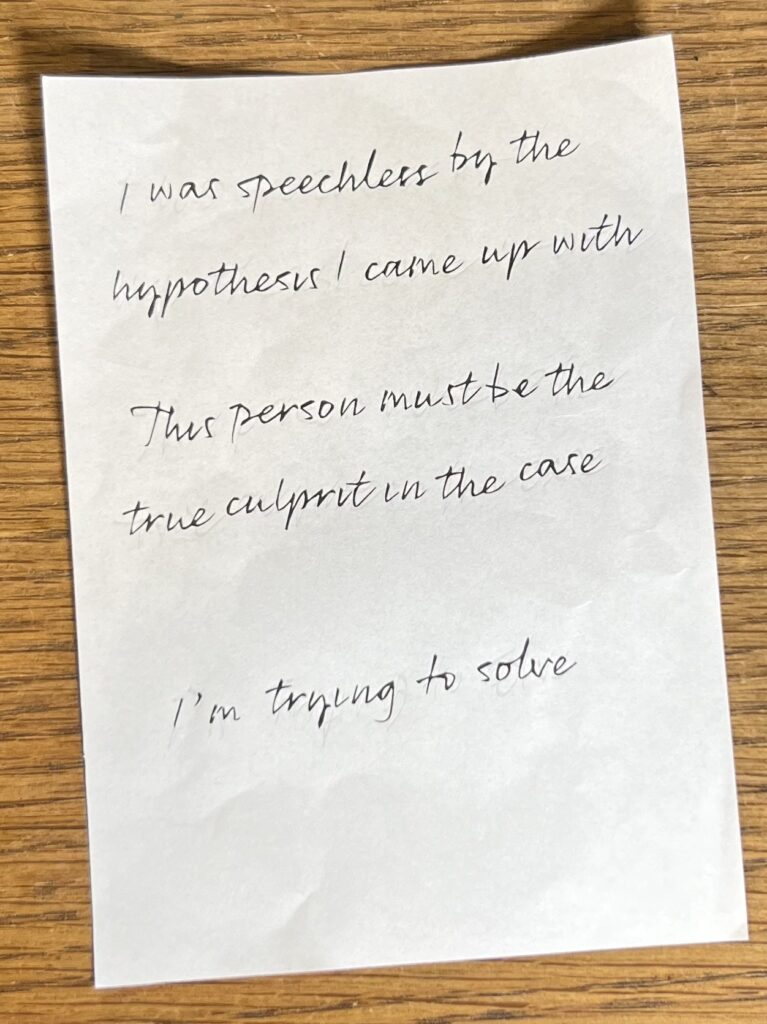 I was speechless by the
hypothesis I came up with
This person must be the
true culprit in the case
I'm trying to solve